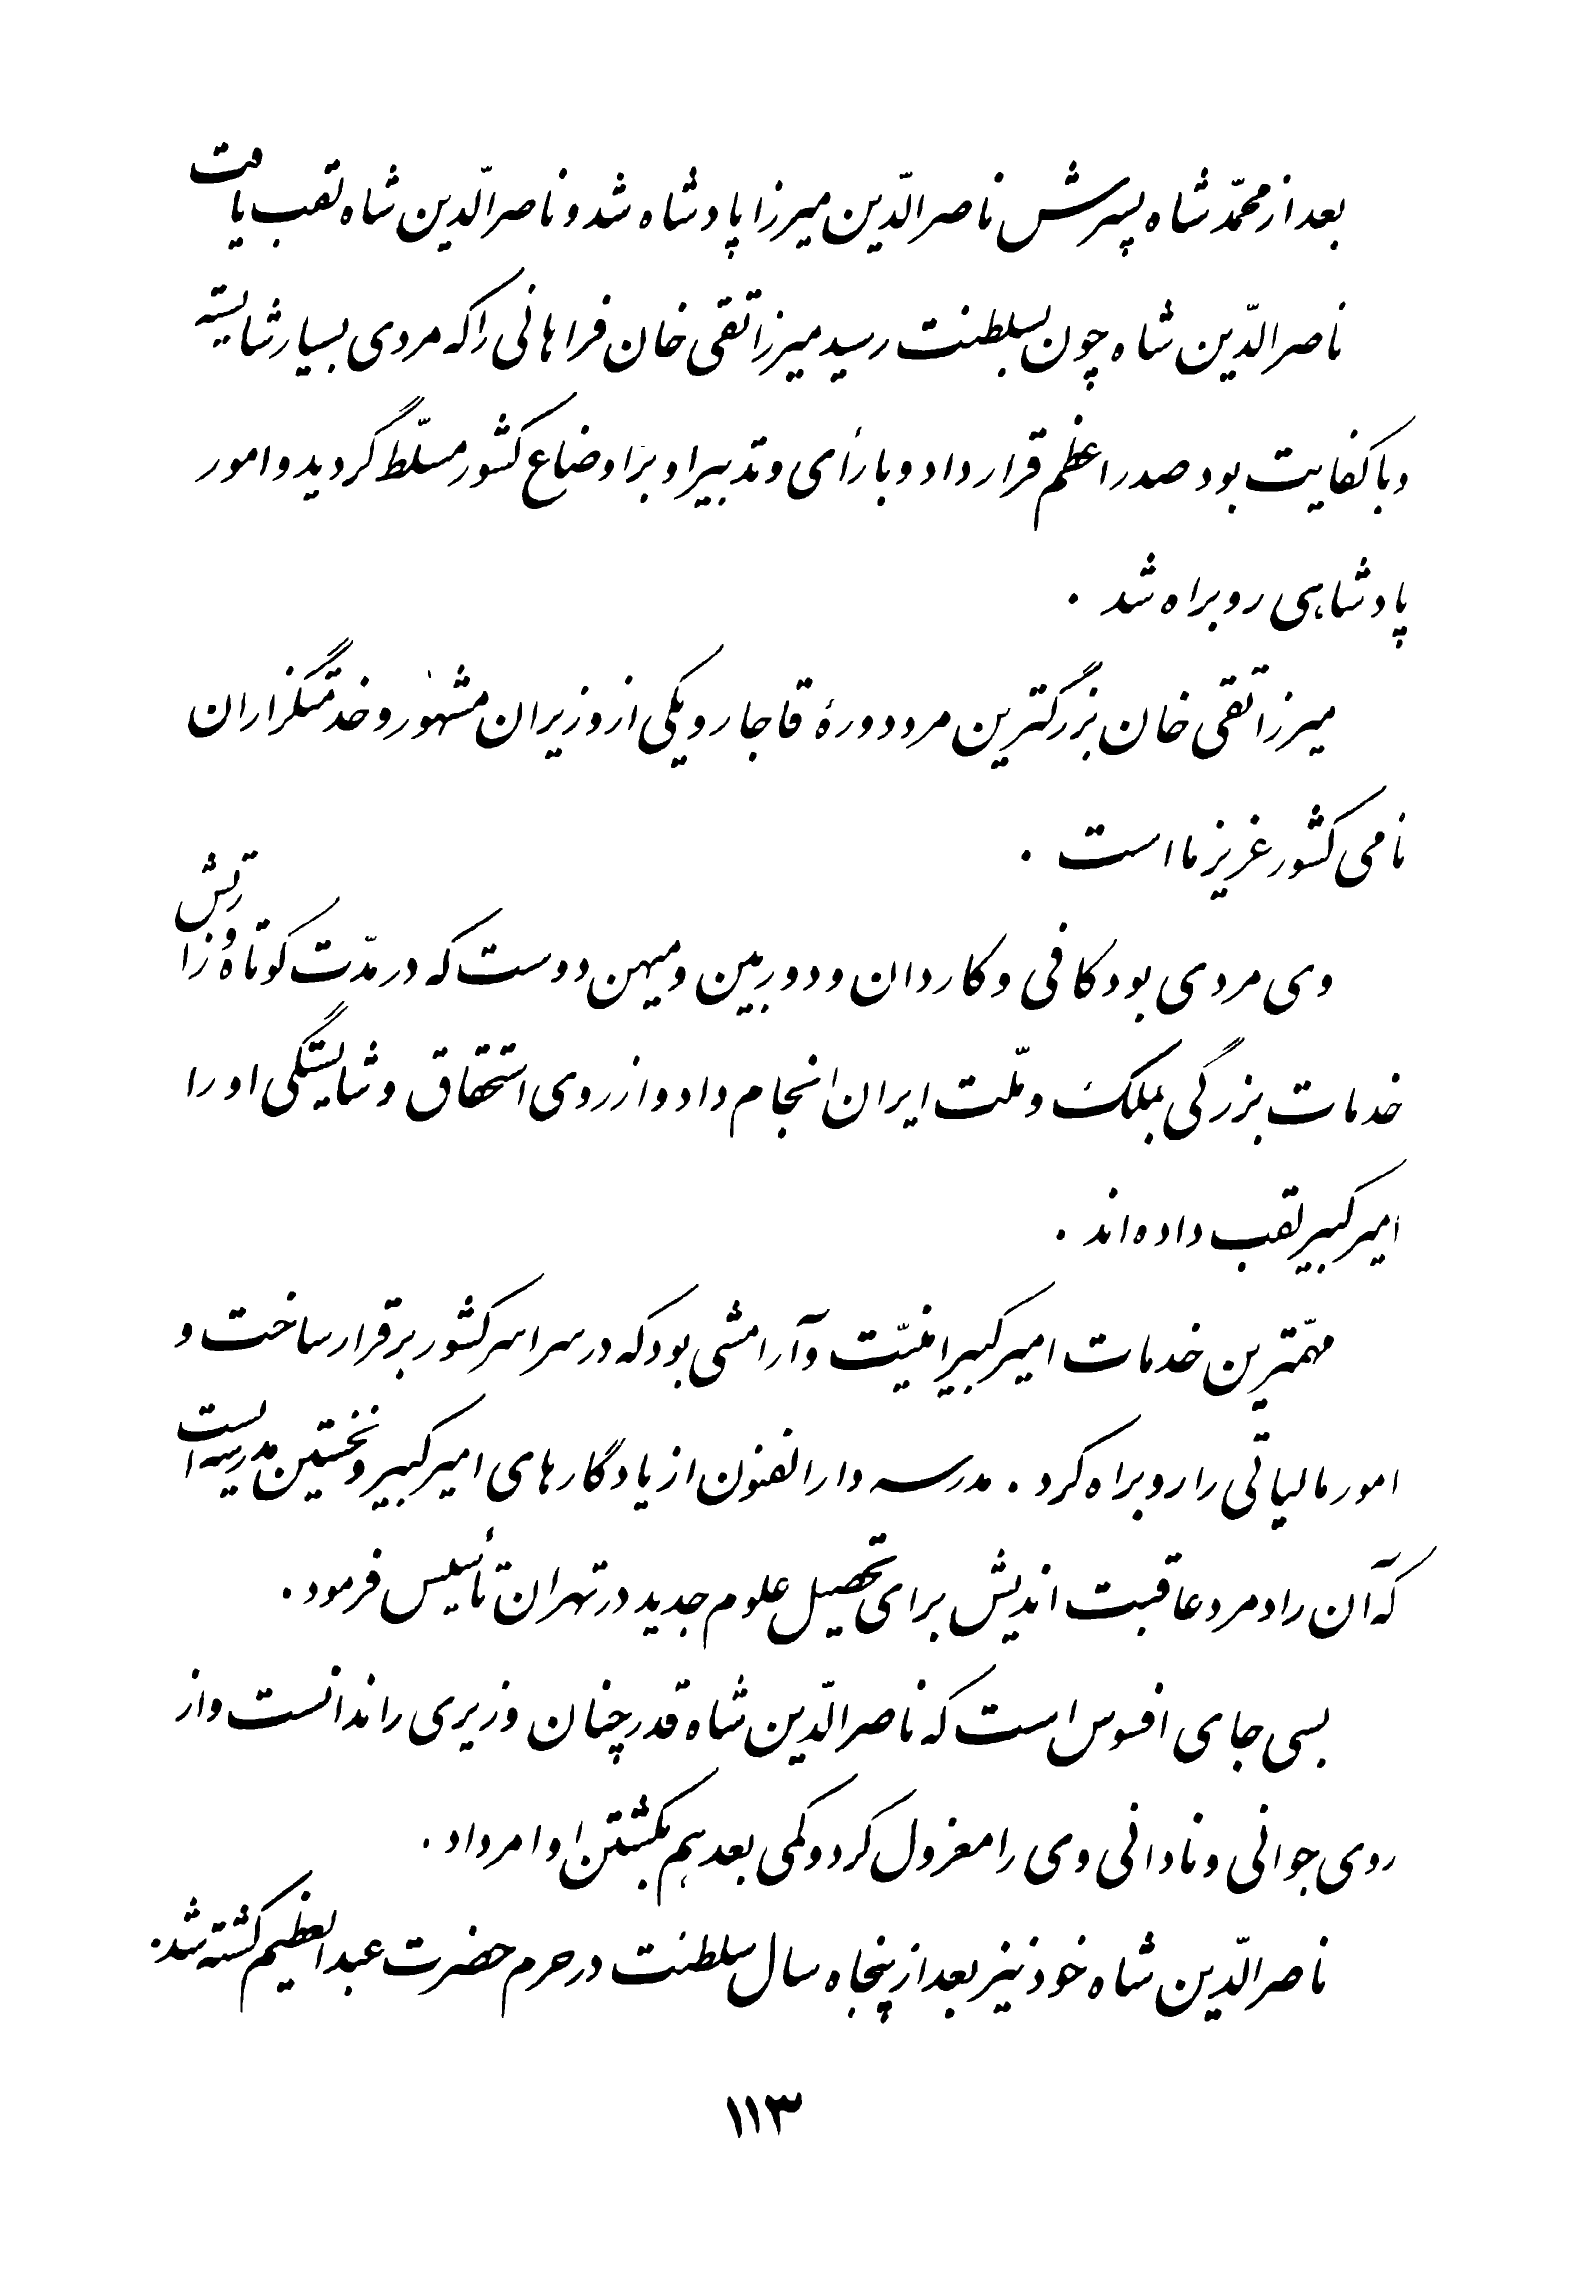 بعد از محمّد شاه پسرش ناصرالدّین میرزا پادشاه شد و ناصرالدّین شاه لقب یافت
ناصرالدّین شاه چون بسلطنت رسید میرزا تقی خان فراهانی را که مردی بسیار شایسته
و با کفایت بود صدراعظم قرار داد و با رأی و تدبیر او بر اوضاع کشور مسلّط گردید و امور
پادشاهی روبراه شد .
میرزا تقی خان بزرگترین مرد دورهٔ قاجار و یکی از وزیران مشهور و خدمتگزاران
نامی کشور عزیز ما است .
وی مردی بود کافی و کاردان و دوربین و میهن دوست که در مدّت کوتاه وزارتش
خدمات بزرگی بملک و ملّت ایران انجام داد و از روی استحقاق و شایستگی او را
امیرکبیر لقب داده‌اند .
مهمّترین خدمات امیرکبیر امنیّت و آرامشی بود که در سراسر کشور برقرار ساخت و
امور مالیاتی را روبراه کرد . مدرسه دارالفنون از یادگارهای امیرکبیر و نخستین مدرسه ایست
که آن رادمرد عاقبت اندیش برای تحصیل علوم جدید در تهران تأسیس فرمود .
بسی جای افسوس است که ناصرالدّین شاه قدر چنان وزیری را ندانست و از
روی جوانی و نادانی وی را معزول کرد و کمی بعد هم بکشتن او امر داد .
ناصرالدّین شاه خود نیز بعد از پنجاه سال سلطنت در حرم حضرت عبدالعظیم کشته شد .
۱۱۳